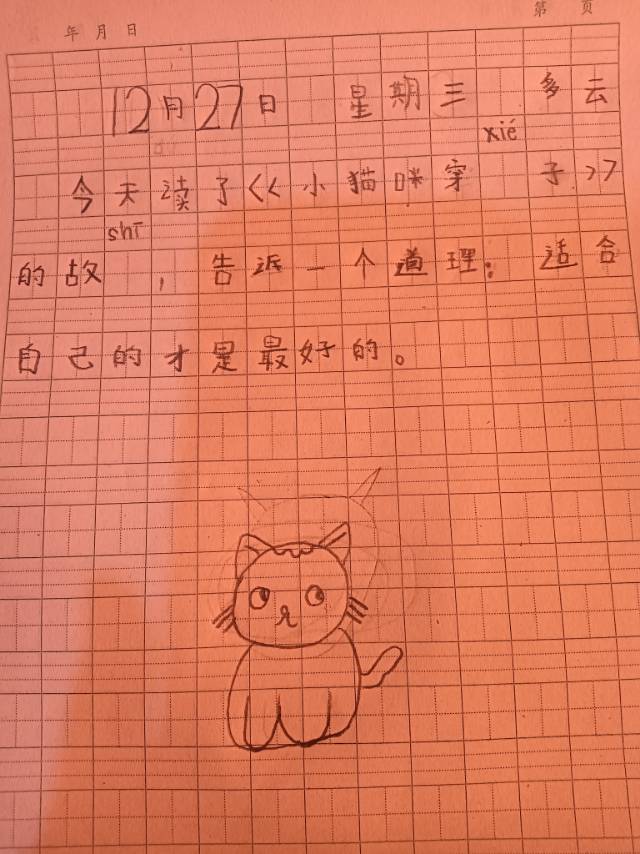 年 月 日 第 页
12月27日 星期三 多云
xié
今天读了《小猫咪穿 子》
shī
的故 ，告诉一个道理：适合
自己的才是最好的。